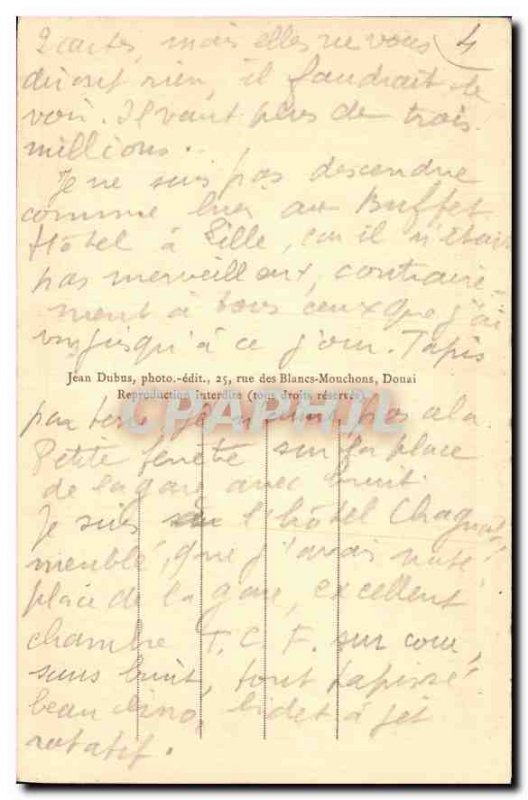 2 cartes, mais elles ne vous 4
diront rien, il faudrait le
voir. Il vaut plus de trois
millions..
Je ne suis pas descendue
comme hier au Buffet
Hôtel à Lille, car il n'était
pas merveilleux, contraire-
ment à tous ceux que j'ai
vu jusqu'à ce jour. Tapis
Jean Dubus, photo.-édit., 25, rue des Blancs-Mouchons, Douai
Reproduction interdite (tous droits réservés)
CPAPHIL
par terre je pas cela.
Petite fenêtre sur la place
de la gare avec bruit.
Je suis à l'hôtel
meublé, que j'avais noté
place de la gare, excellent
chambre T.C.F. sur cour,
sans bruit, tout tapissé
beau lino, bidet à jet
rotatif.